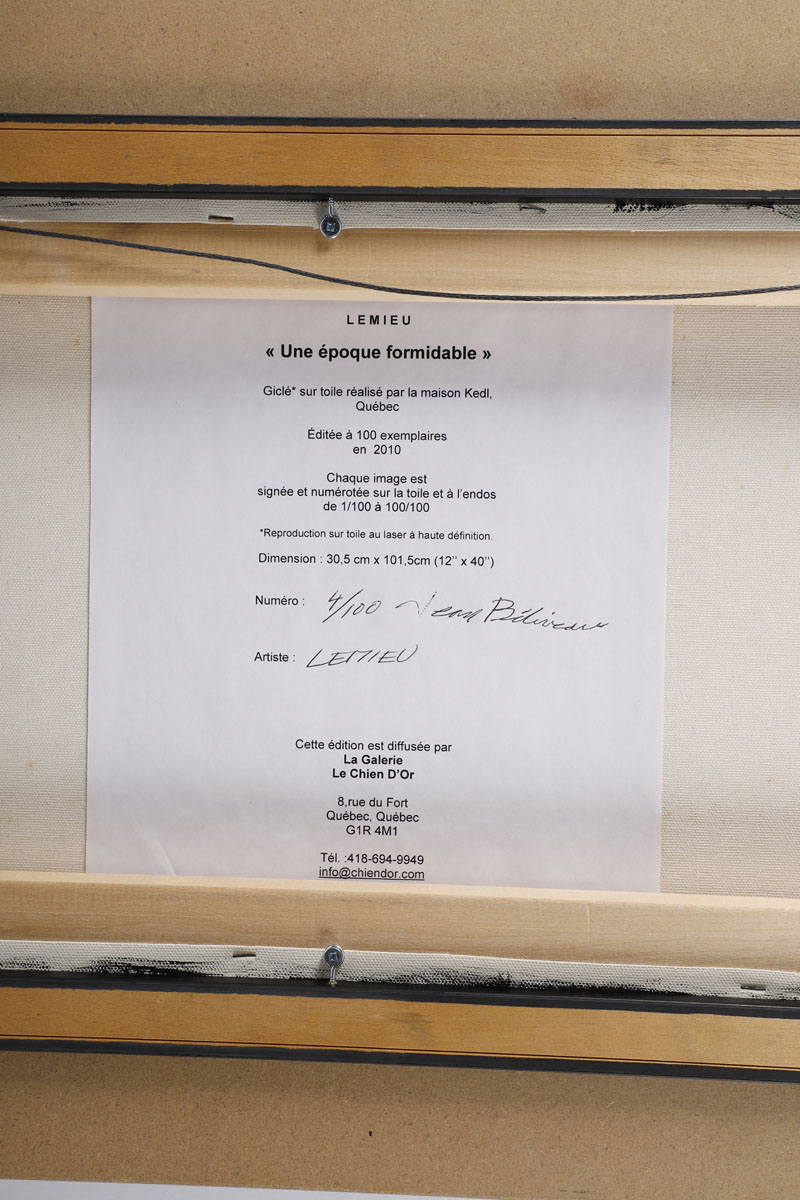 LEMIEU
« Une époque formidable »
Giclé* sur toile réalisé par la maison Kedl,
Québec
Éditée à 100 exemplaires
en 2010
Chaque image est
signée et numérotée sur la toile et à l'endos
de 1/100 à 100/100
*Reproduction sur toile au laser à haute définition.
Dimension : 30,5 cm x 101,5cm (12’’ x 40’’)
Numéro : 4/100 Jean Béliveau
Artiste : LEMIEU
Cette édition est diffusée par
La Galerie
Le Chien D'Or
8,rue du Fort
Québec, Québec
G1R 4M1
Tél. :418-694-9949
info@chiendor.com